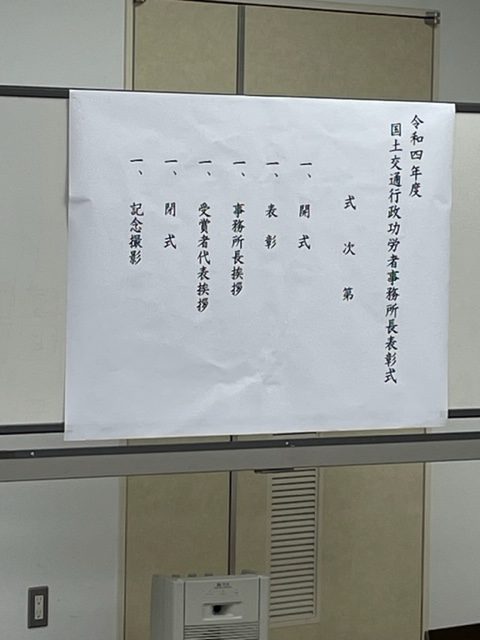 令和四年度
国土交通行政功労者事務所長表彰式
式次第
一、開式
一、表彰
一、事務所長挨拶
一、受賞者代表挨拶
一、閉式
一、記念撮影